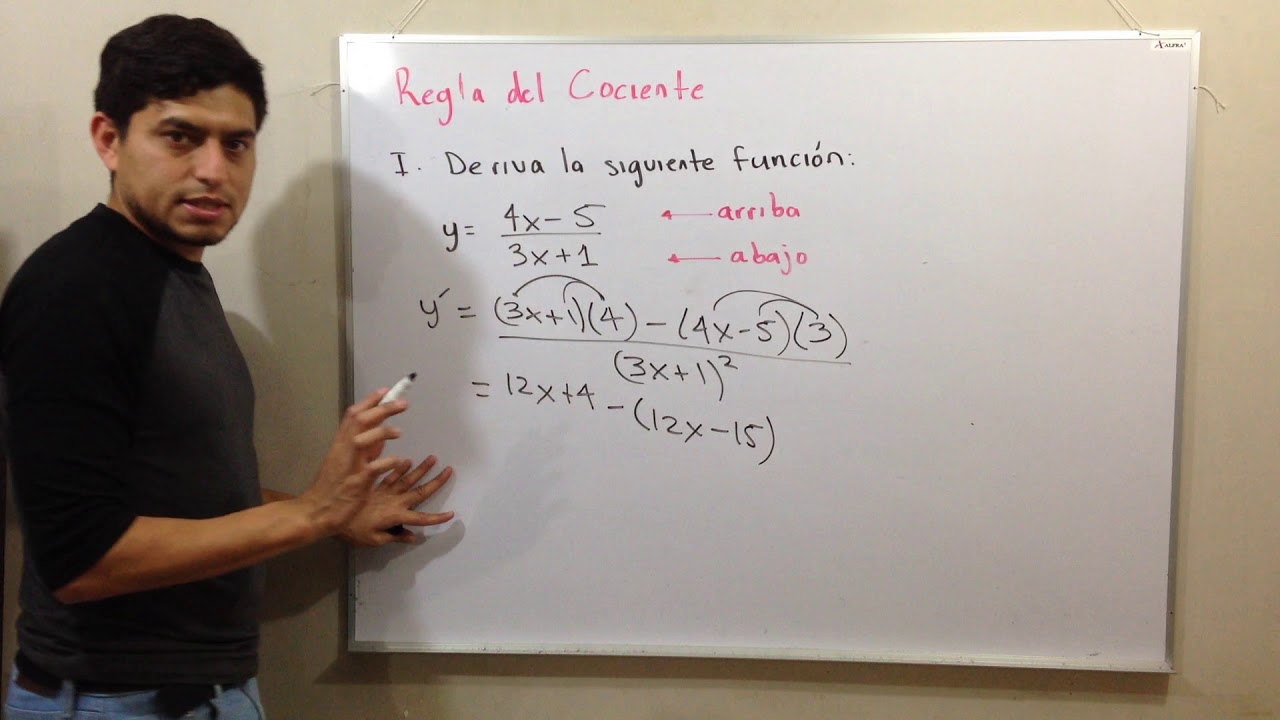 ALFRA
Regla del Cociente
I. Deriva la siguiente función:
y = 4x - 5 / 3x + 1
← arriba
← abajo
y´ = (3x+1)(4) - (4x-5)(3) / (3x+1)²
= 12x+4 - (12x-15)